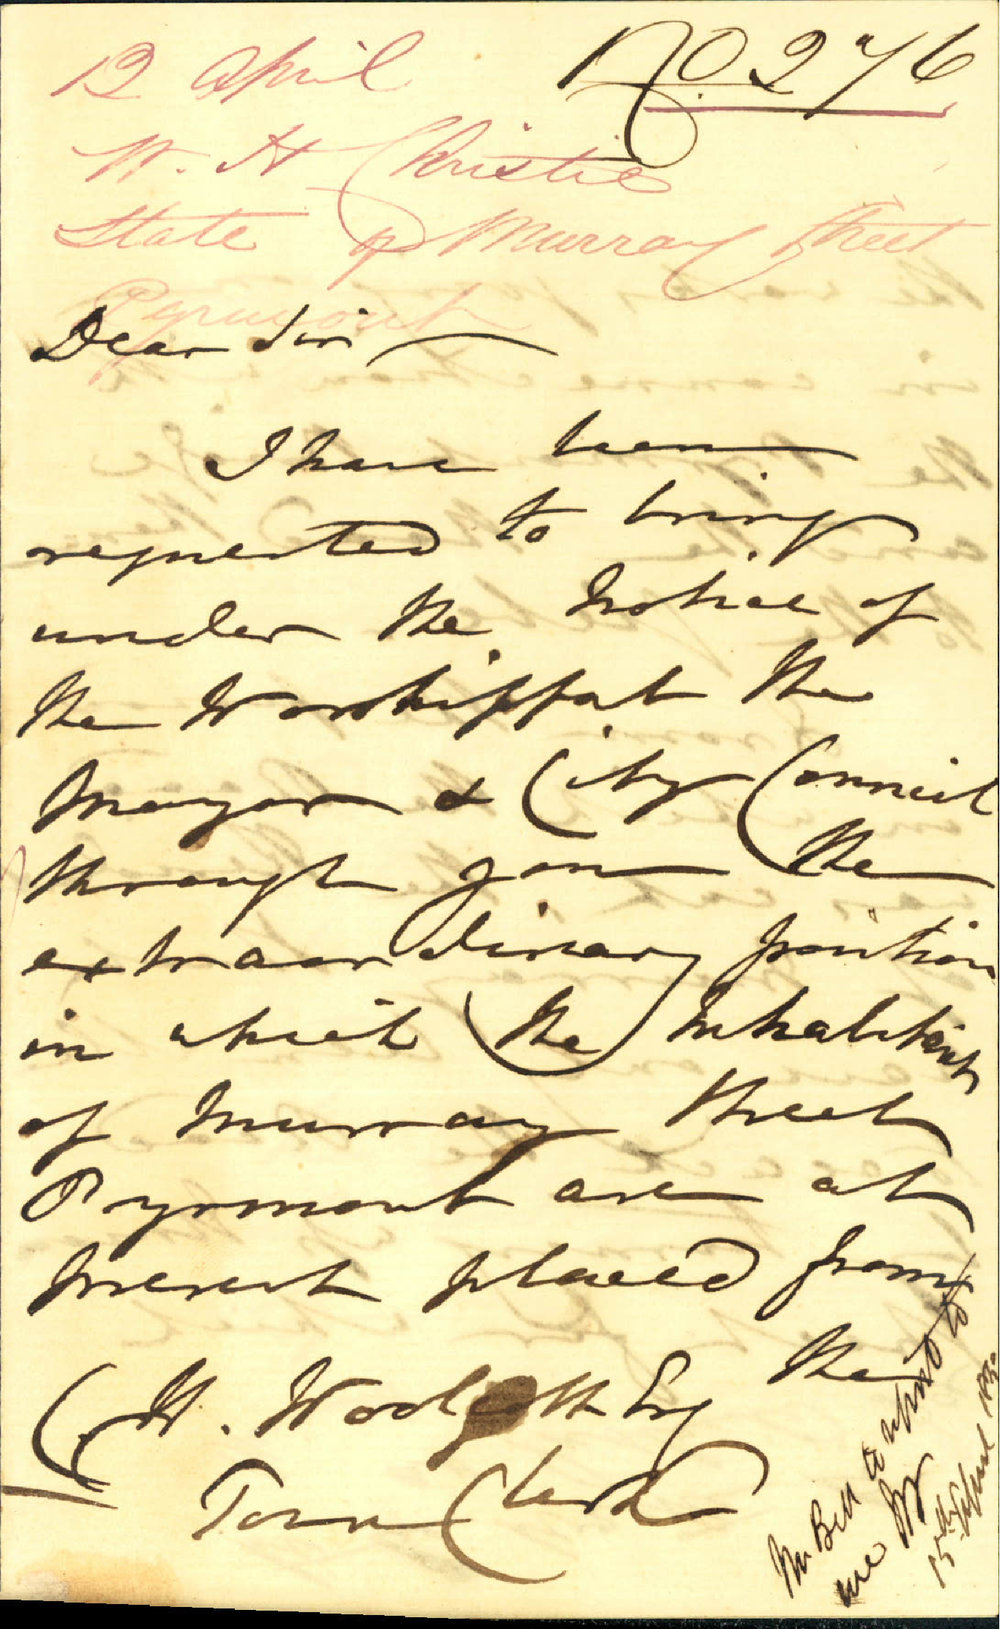 No 276
12 April
W. H Christie
State of Murray Street
Pyrmont
Dear Sir
I have been
requested to bring
under the Notice of
the Worshipful the
Mayor & City Council
through you the
extraordinary position
in which the Inhabitants
of Murray Street
Pyrmont are at
present placed from
the
C. H. Woolcott Esq
Town Clerk
Mr Bell to report to
me
15th April